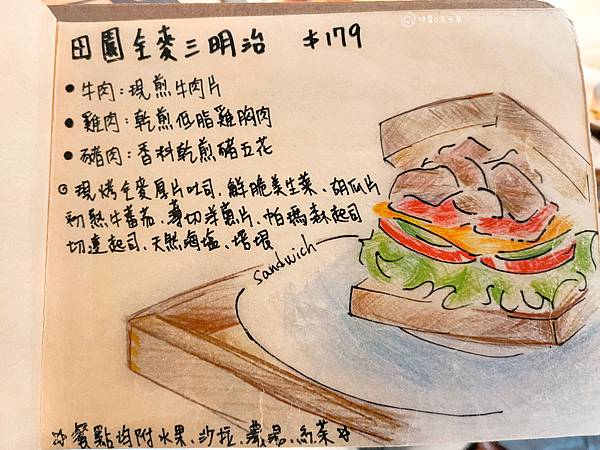 田園全麥三明治 $179
牛肉:現煎牛肉片
雞肉:乾煎低脂雞胸肉
豬肉:香料乾煎豬五花
現烤全麥厚片吐司、鮮脆美生菜、胡瓜片
初熟牛蕃茄、薄切洋蔥片、帕瑪森起司
切達起司、天然海塩、培根
sandwich
☆餐點均附水果、沙拉、濃湯、紅茶☆